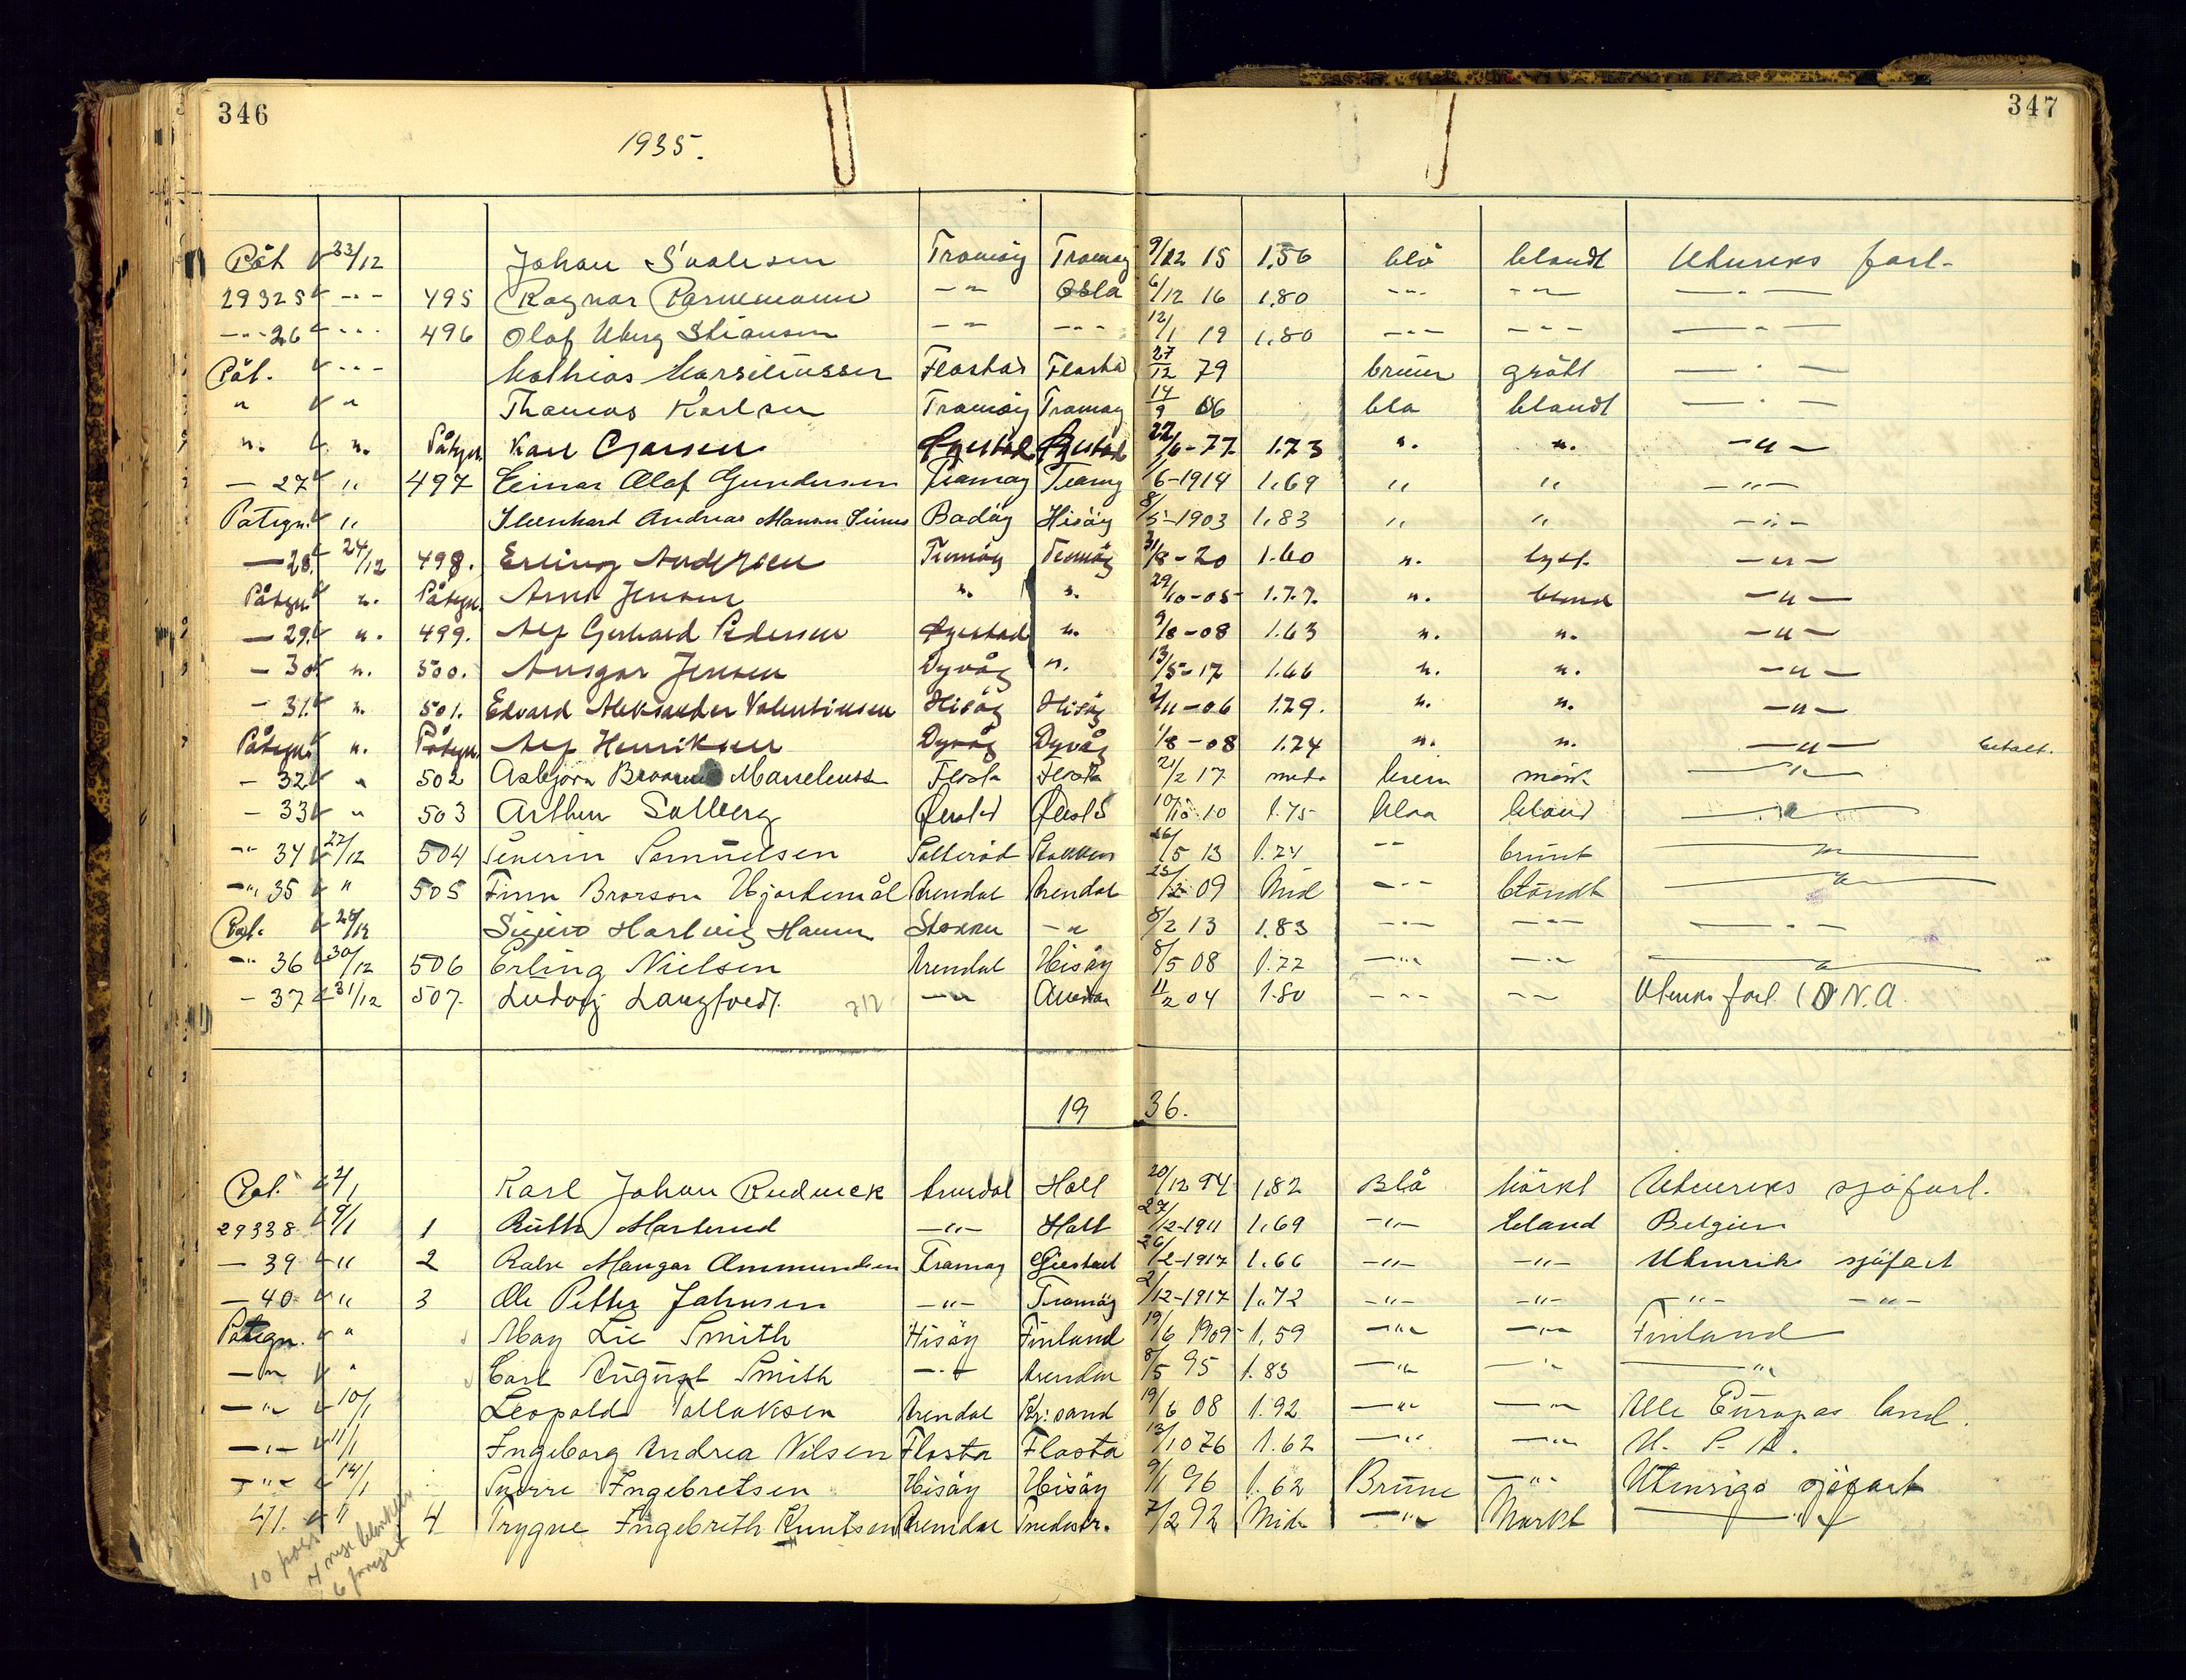 346 347
1935.
Påt 23/12 Johan Tromøy Tromøy 9/12 15 1.56 blå blondt Utenriks fart
29325 - " - 495 Ragnar - " - Oslo 6/12 16 1,80 - " - - " - - " -
- " - 26 - " - 496 Olaf Uberg Stiansen - " - - " - 12/1 19 1,80 - " - - " - - " -
Påt. - " - Mathias Marseliussen Flosta Flosta 27/12 79 brune grått - " -
" " Thomas Karlsen Tromøy Tromøy 14/9 06 blå blondt - " -
". ". Påtegn. Karl Øyestad Øyestad 22/6-77 1.73 ". ". - " -
- 27 " 497 Einar Olaf Gundersen Tromøy Tromøy 1/6-1914 1.69 " " - " -
Påtegn. " Andreas Hisøy 8/5-1903 1,83 " " - " -
- 28. 24/12 498. Erling Andersen Tromøy Tromøy 31/8-20 1.60 ". lyst. - " -
Påtegn. ". Påtegn. Arne Jensen ". ". 29/10-05 1.77. ". blond - " -
- 29. ". 499. Alf Gerhard Pedersen Øyestad ". 9/8-08 1.63 ". ". - " -
- 30. ". 500. Ansgar Jensen Dyvåg ". 13/5-17 1.66 ". ". - " -
- 31. ". 501. Edvard Aleksander Valentinsen Hisøy Hisøy 2/11-06 1.79. ". ". - " -
Påtegn. ". Påtegn. Alf Henriksen Dyvåg Dyvåg 1/8-08 1.74 ". ". - " - betalt.
- 32 " 502 Asbjørn Flosta Flosta 21/2 17 brun mørk - " -
- 33 " 503 Arthur Solberg 10/10 10 1.75 blaa blond - " -
- " - 34 27/12 504 Severin Samuelsen Stokken 26/5 13 1.74 - " - brunt - " -
- " - 35 " 505 Finn Brorson Hjortemål Arendal Arendal 09 Mid - " - blondt - " -
Påt. 28/12 Sigurd Hartvig Stokken - " - 8/2 13 1.83 - " - - " - - " -
- " - 36 30/12 506 Erling Nielsen Arendal Hisøy 8/5 08 1.72 - " - - " - - " -
- 37 31/12 507. Ludvig Langfeldt. 212 - " - 11/2 04 1.80 - " - - " - Utenriks fart N.A.
19 36.
Påt. 2/1 Karl Johan Arendal Holt 20/12 94 1,82 Blå Mørkt Utenriks sjøfart.
29338 9/1 1 Ruth Marterud - " - Holt 27/12-1911 1,69 - " - blond Belgien
- 39 " 2 Mangor Ammundsen Tromøy 26/2-1917 1.66 - " - - " - Utenriks sjøfart
- 40 " 3 Ole Petter Johnsen - " - Tromøy 2/12-1917 1.72 - " - - " - - " - - " -
Påtegn. " May Lie Smith Hisøy Finland 19/6 1909 1,59 - " - - " - Finland
- " - " Carl August Smith - " - Arendal 8/5 95 1.83 - " - - " - - " -
- " - 10/1 Leopold Tallaksen Arendal Kr.sand 19/6 08 1.92 - " - - " - Alle Europas land.
- " - 11/1 Ingeborg Andrea Nilsen Flosta Flosta 13/10 76 1.62 - " - - " - U. S. A.
- " - 14/1 Sverre Ingebretsen Hisøy Hisøy 9/1 96 1.62 Brune - " - Utenrigs sjøfart
41. " 4 Trygve Ingebreth Knutsen Arendal 7/2 92 Mid. - " - Mørkt - " -
10 pass
4 nye
6